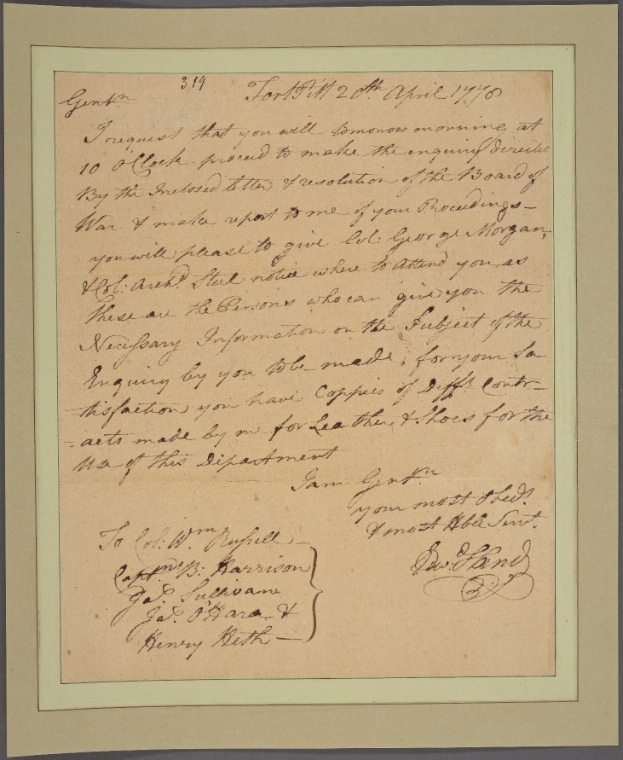 319
Fort Pitt 20th April 1778
Gentn
I request that you will tomorow morning at
10 O'Clock proceed to make the enquiry Directed
By the Inclosed letter & resolution of the Board of
War & make report to me of your Proceedings —
you will please to give Col: George Morgan,
& Col: Archd. Steel notice where to Attend you, as
these are the Persons who can give you the
Necessary Information on the Subject of the
Enquiry by you to be made, for your Sa
tisfaction you have Coppies of Difft. Contr-
-acts made by me for Leather & Shoes for the
Use of this Dipartment
I am Gentn.
your most Obedt.
& most Hble Servt.
Edwd. Hand
To Col: Wm. Russell —
Captns. B: Harrison
Jas. Sullivan
Jas. O'Hara &
Henry Heth —